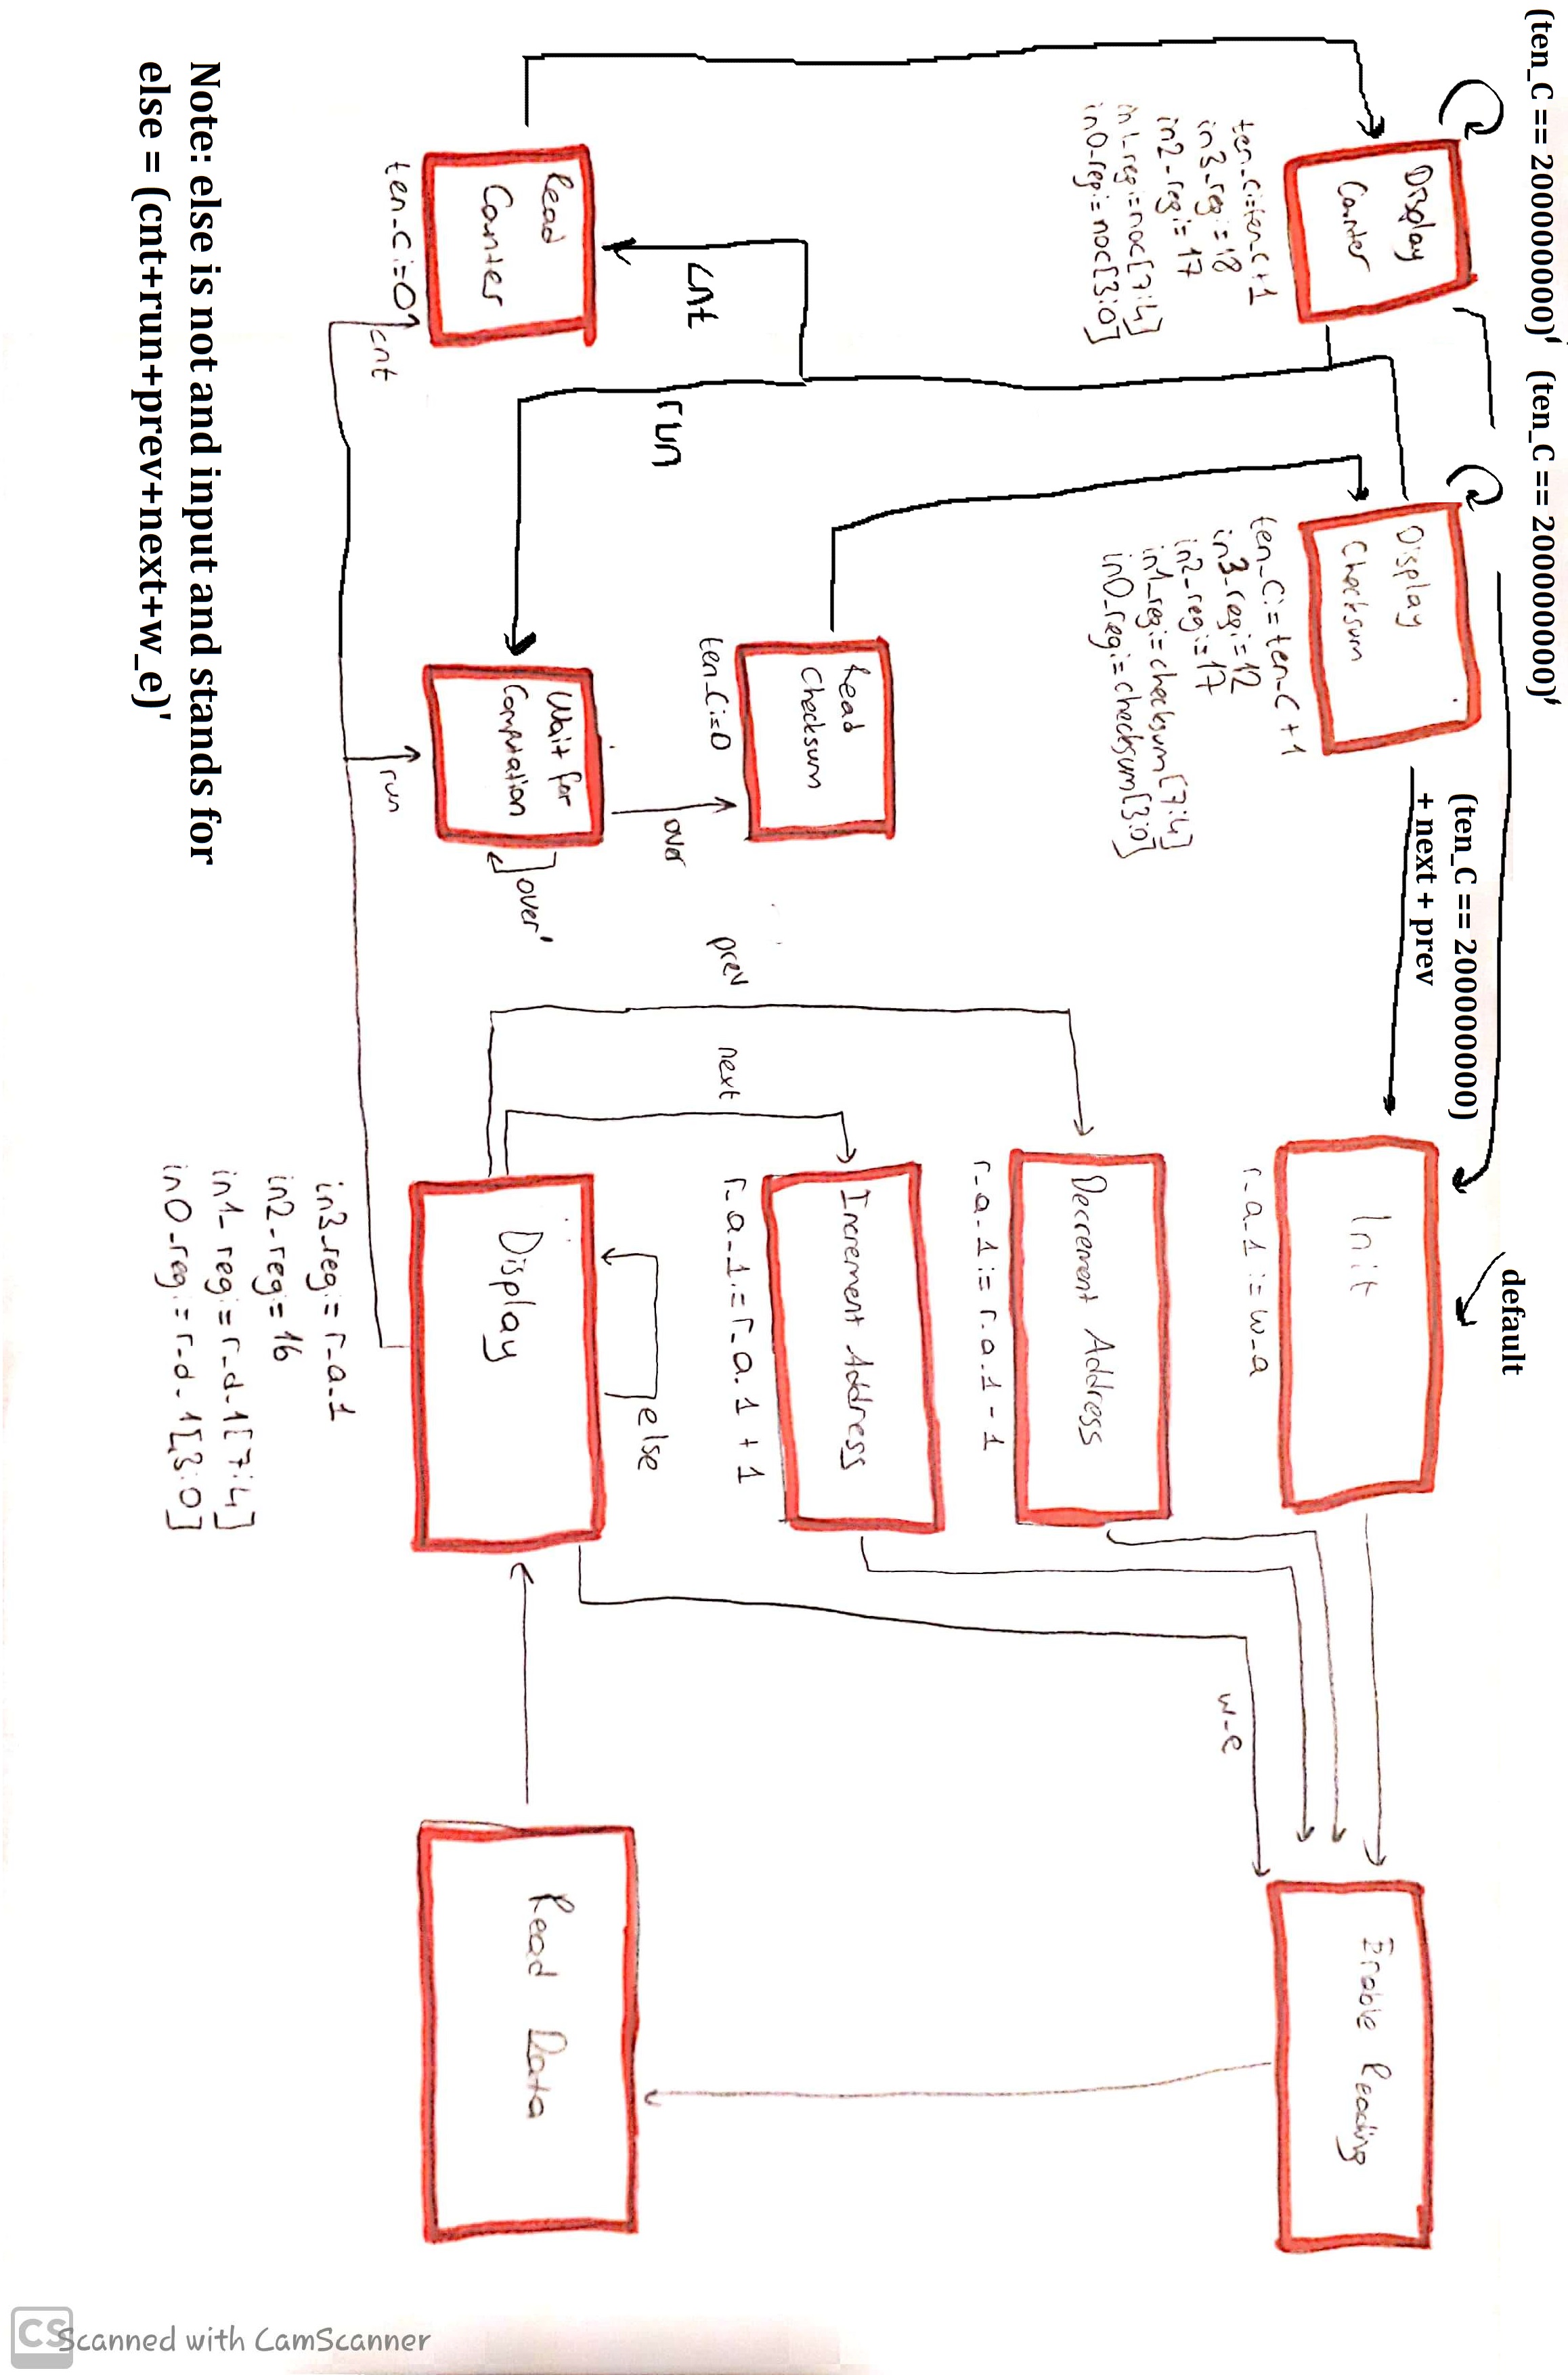 (ten_C == 200000000)'
(ten_C == 200000000)'
default
(ten_C == 200000000)
+ next + prev
Display
Counter
ten_C:=ten_C+1
in3_reg:=18
in2_reg:= 17
in1_reg:=noc[7:4]
in0_reg:=noc[3:0]
Display
Checksum
ten_C:= ten_C + 1
in3_reg:=12
in2_reg:=17
in1_reg:=checksum[7:4]
in0_reg:=checksum[3:0]
Init
r_a_1 := w_a
Enable Reading
w_e
Decrement Address
r_a_1 := r_a_1 - 1
Increment Address
r_a_1:=r_a_1 + 1
Read
Checksum
ten_C:=0
prev
next
cnt
run
over
else
Read
Counter
ten_C:=0
cnt
Wait for
Computation
over'
run
Display
Read Data
in3_reg:= r_a_1
in2_reg:= 16
in1_reg:=r_d_1[7:4]
in0_reg:=r_d_1[3:0]
Note: else is not and input and stands for
else = (cnt+run+prev+next+w_e)'
CS Scanned with CamScanner